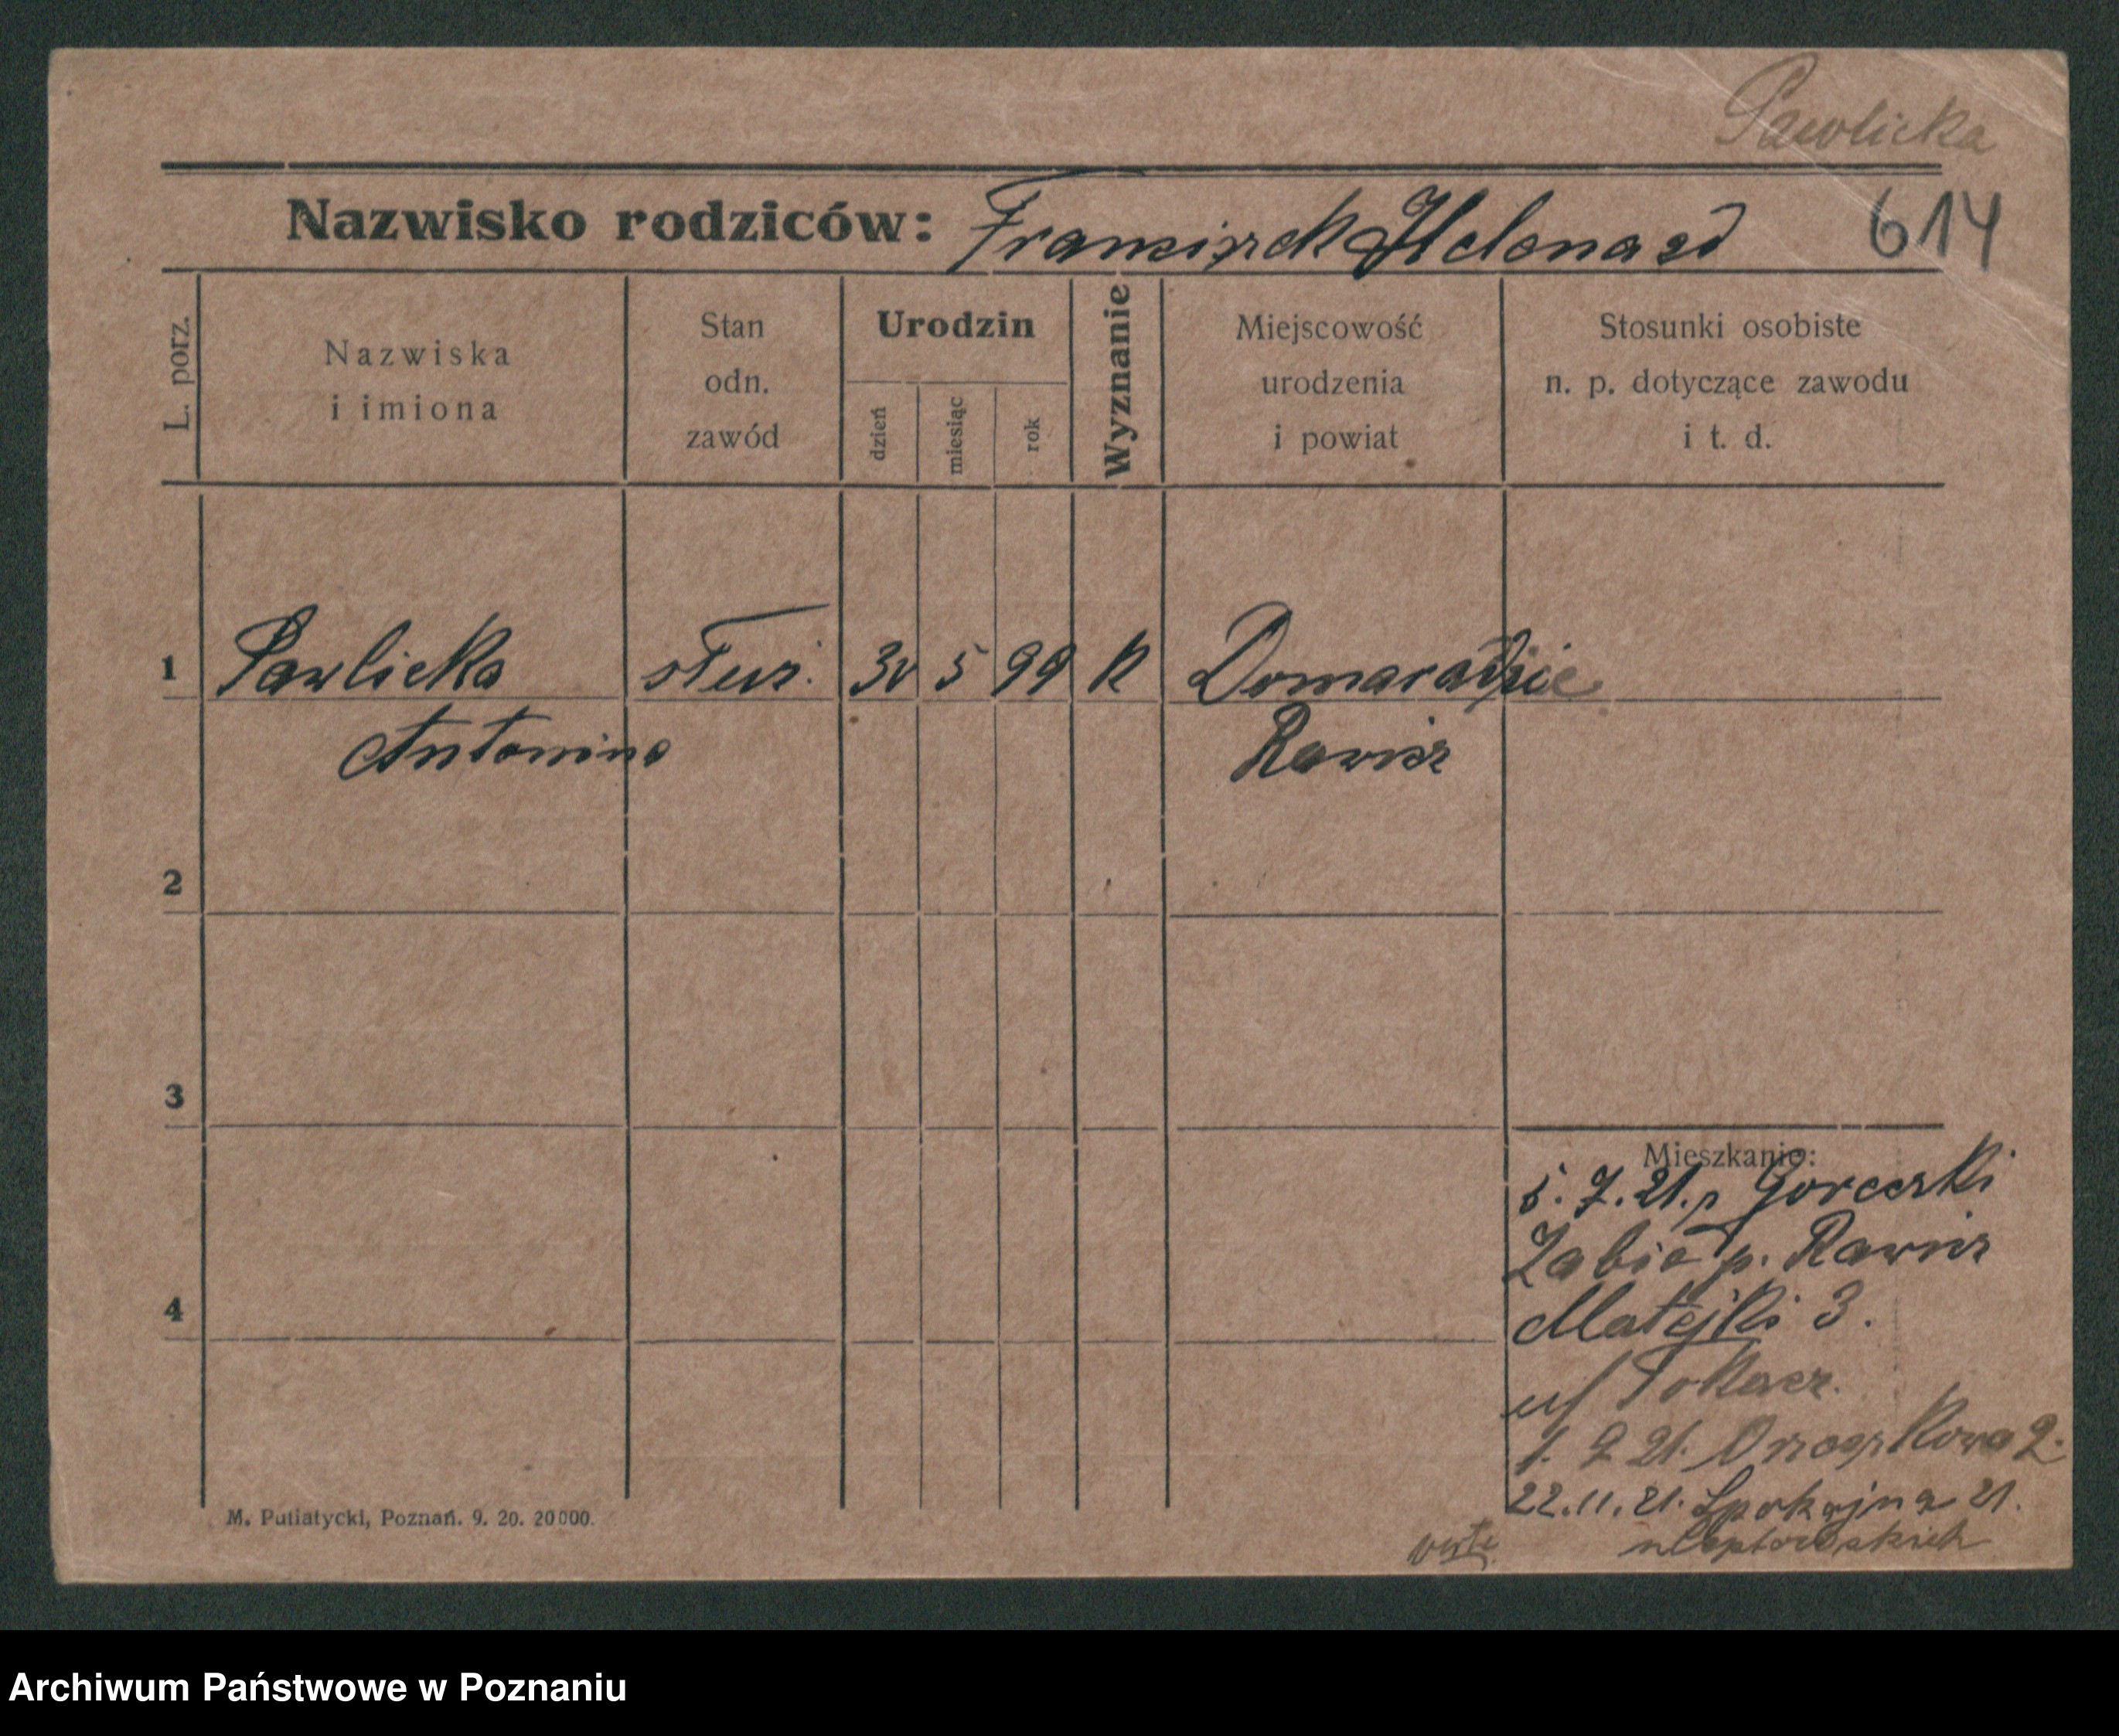 Pawlicka
Nazwisko rodziców: Franciszek Helena sd 614
L. porz.
Nazwiska i imiona
Stan odn. zawód
Urodzin
dzień
miesiąc
rok
Wyznanie
Miejscowość urodzenia i powiat
Stosunki osobiste n. p. dotyczące zawodu i t. d.
1 Pawlicka służ. 30 5 99 K Domaradzie
Antonina Rawicz
2
3
4
Mieszkanie:
5. 7. 21. p
p. Rawicz
Matejki 3.
1. 9 21. Orzeszkowa 2.
22. 11. 21. Spokojna 21.
verte
M. Putiatycki, Poznań. 9. 20. 20000.
Archiwum Państwowe w Poznaniu